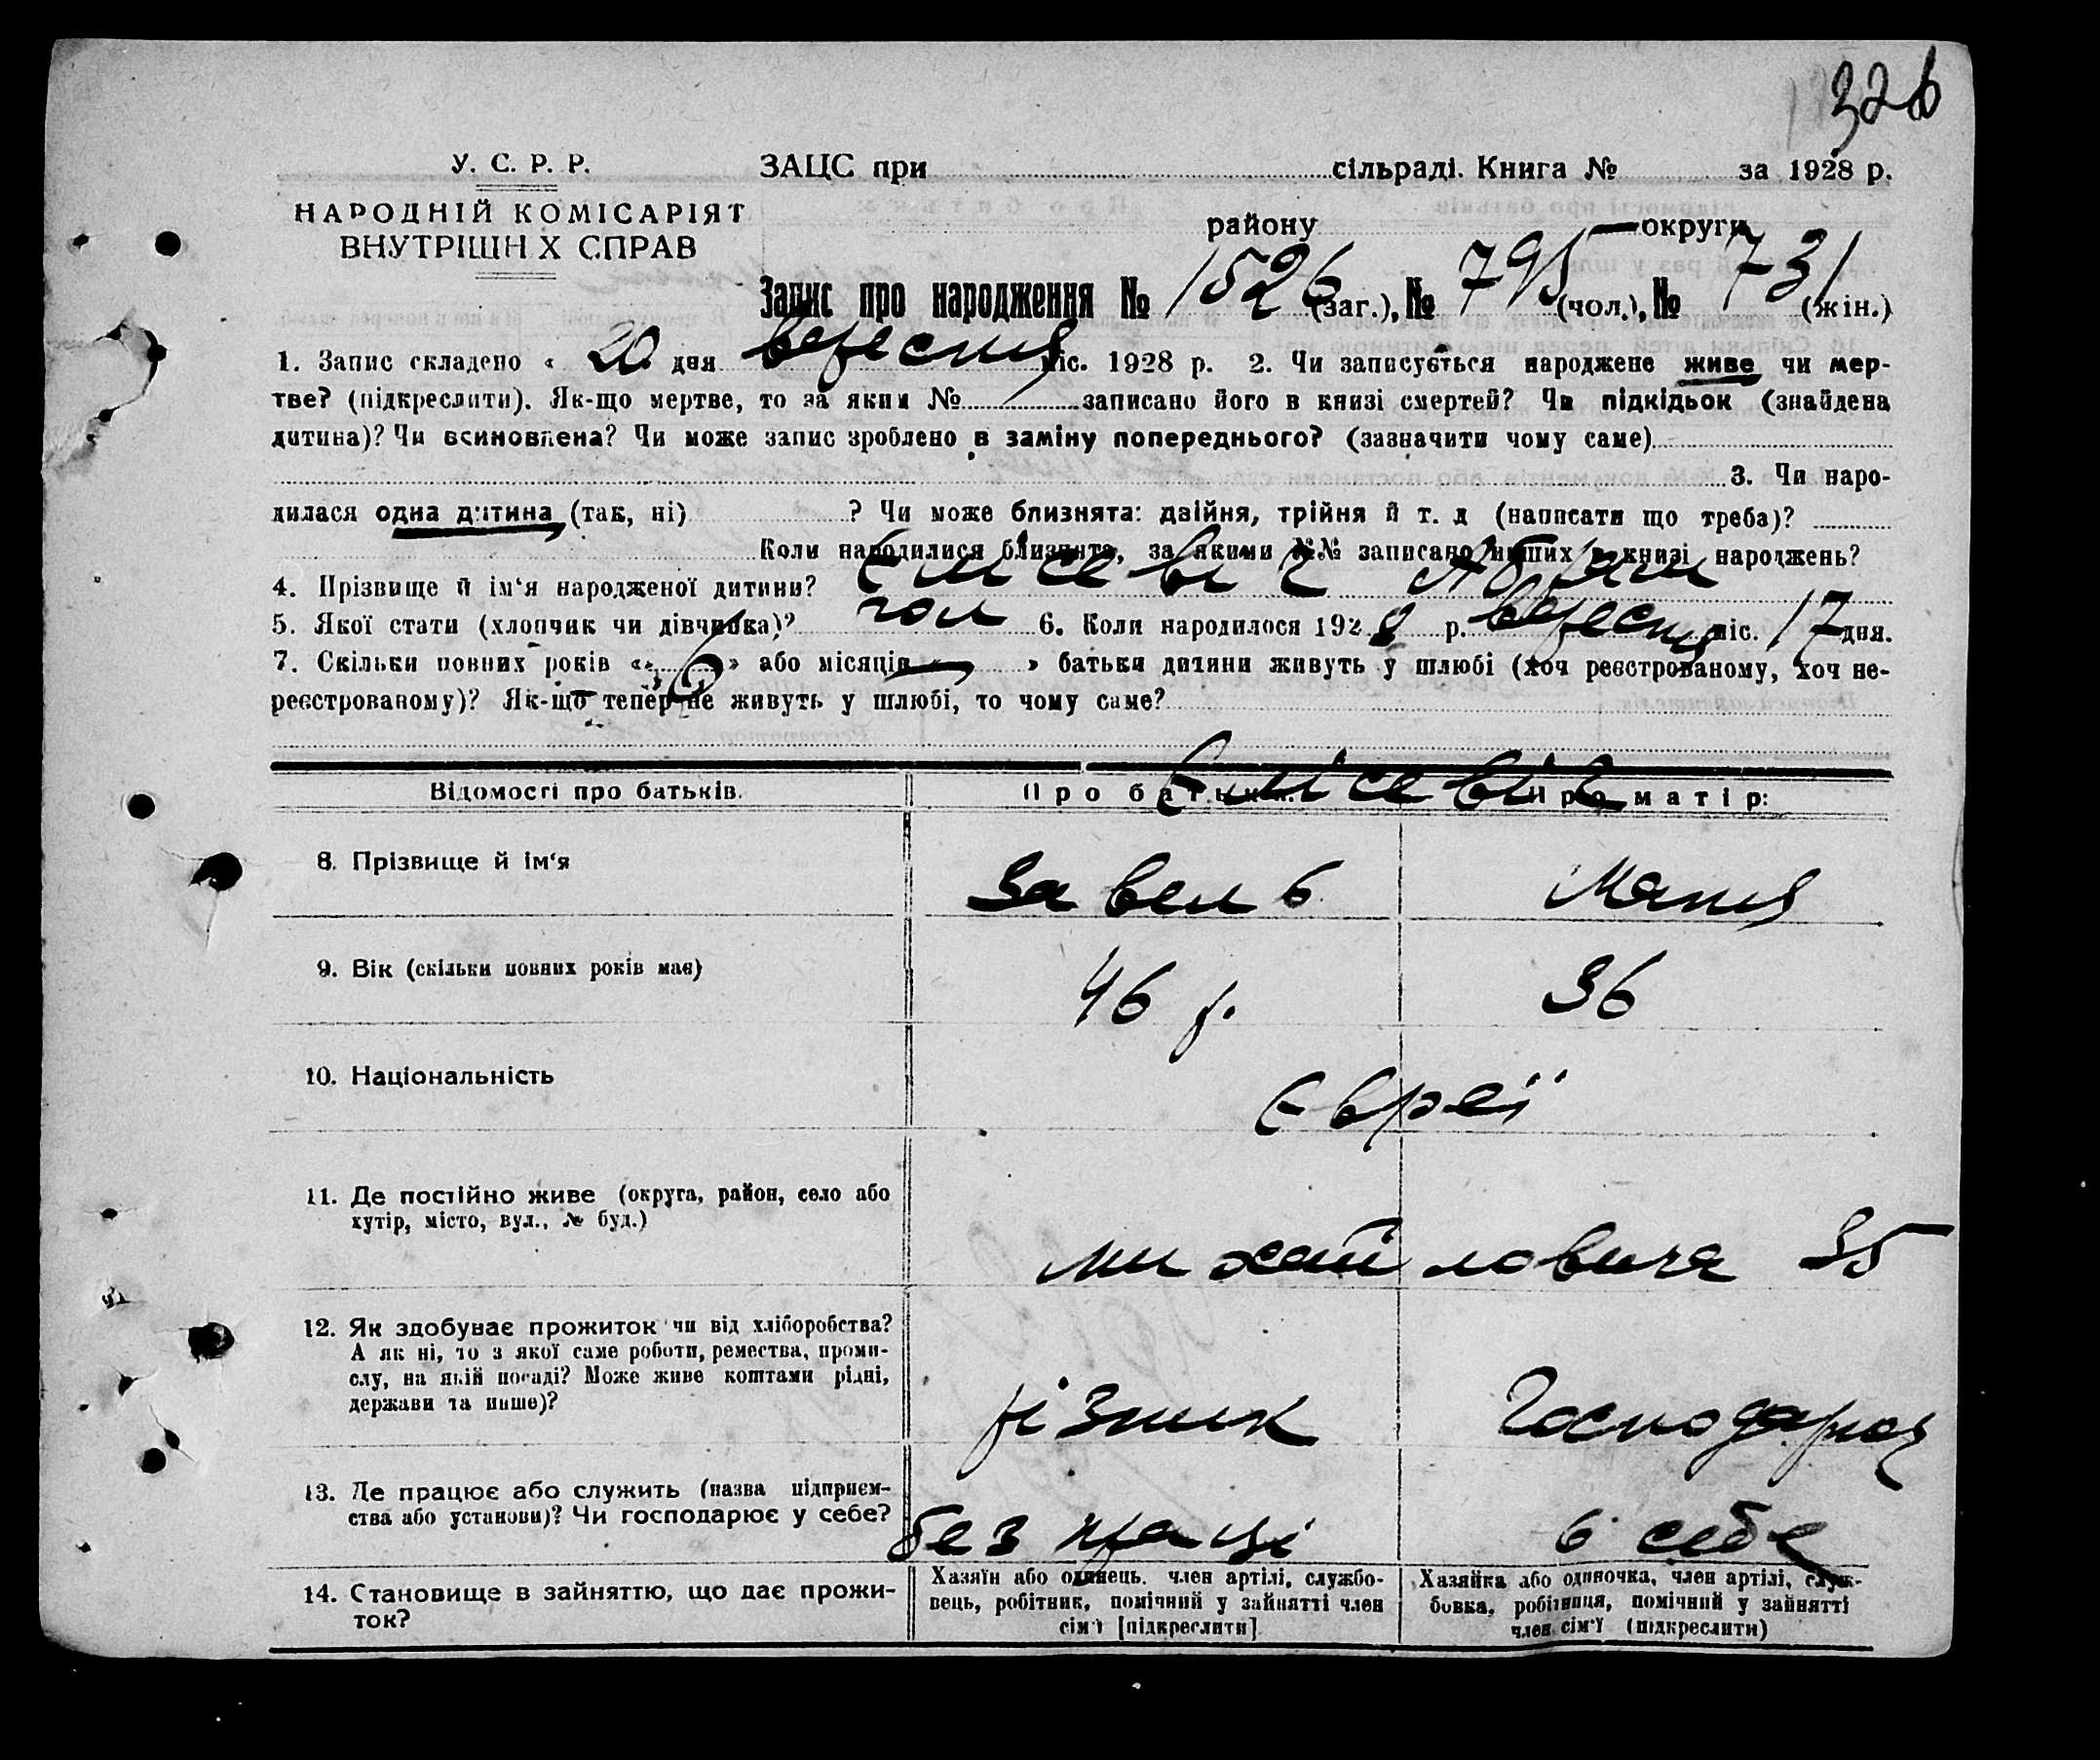 326
У. С. Р. Р.
НАРОДНІЙ КОМІСАРІЯТ
ВНУТРІШН Х СПРАВ
ЗАЦС при сільраді. Книга № за 1928 р.
району округи
Запис про народження № 1526 (заг.), № 795 (чол.), № 731 (жін.)
1. Запис складено « 20 дня вересня міс. 1928 р. 2. Чи записується народжене живе чи мер-
тве? (підкреслити). Як-що мертве, то за яким № записано його в книзі смертей? Чи підкідьок (знайдена
дитина)? Чи всиновлена? Чи може запис зроблено в заміну попереднього? (зазначити чому саме)
3. Чи наро-
дилася одна дитина (так, ні) ? Чи може близнята: двійня, трійня й т. д (написати що треба)?
Коли народилися близнята, за якими №№ записано инших в книзі народжень?
4. Прізвище й ім'я народженої дитини? Єлісевіч Абрам
5. Якої стати (хлопчик чи дівчинка)? чол 6. Коли народилося 1928 р. вересня міс. 17 дня.
7. Скільки повних років « » або місяців « — » батьки дитини живуть у шлюбі (хоч реєстрованому, хоч не-
реєстрованому)? Як-що тепер не живуть у шлюбі, то чому саме?
Єлісевіч
Відомості про батьків. Про батька: Про матір:
8. Прізвище й ім'я Завель Маня
9. Вік (скільки повних років має) 46 р. 36
10. Національність Євреї
11. Де постійно живе (округа, район, село або
хутір, місто, вул., № буд.)
михайловича 35
12. Як здобуває прожиток чи від хліборобства?
А як ні, то з якої саме роботи, ремества, проми-
слу, на якій посаді? Може живе коштами рідні,
держави та инше)?
різник Господарює
13. Де працює або служить (назва підприєм-
ства або установи)? Чи господарює у себе?
без праці в себе
14. Становище в зайняттю, що дає прожи-
ток?
Хазяїн або одинець. член артілі, службо-
вець, робітник, помічний у зайнятті член
сім'ї [підкреслити]
Хазяйка або одиночка, член артілі, служ-
бовка, робітниця, помічний у зайнятті
член сім'ї (підкреслити)